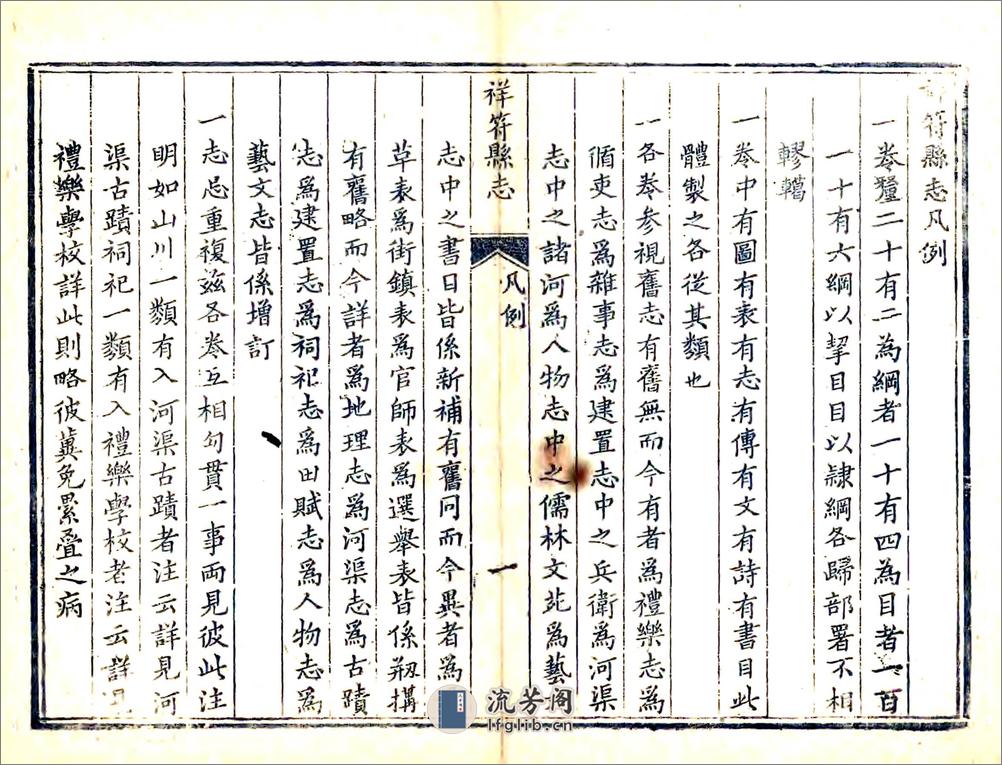 符縣志凡例
一卷釐二十有二為綱者一十有四為目者一百
一十有六綱以挈目目以隸綱各歸部署不相
轇轕
一卷中有圖有表有志有傳有文有詩有書目此
體製之各從其類也
一各卷參視舊志有舊無而今有者為禮樂志為
循吏志為雜事志為建置志中之兵衛為河渠
志中之諸河為人物志中之儒林文苑為藝
祥符縣志
凡例
一
志中之書目皆係新補有舊同而今異者為
草表為街鎮表為官師表為選舉表皆係剏搆
有舊略而今詳者為地理志為河渠志為古蹟
志為建置志為祠祀志為田賦志為人物志為
藝文志皆係增訂
一志忌重複茲各卷互相勾貫一事両見彼此注
明如山川一類有入河渠古蹟者注云詳見河
渠古蹟祠祀一類有入禮樂學校者注云詳見
禮樂學校詳此則略彼冀免纍疊之病
流芳阁
lfglib.cn